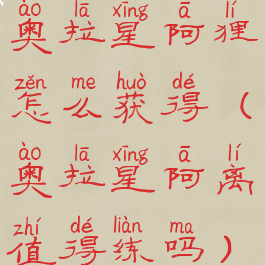 ào lā xīng ā lí
奥拉星阿狸
zěn me huò dé
怎么获得（
ào lā xīng ā lí
奥拉星阿离
zhí dé liàn ma
值得练吗）